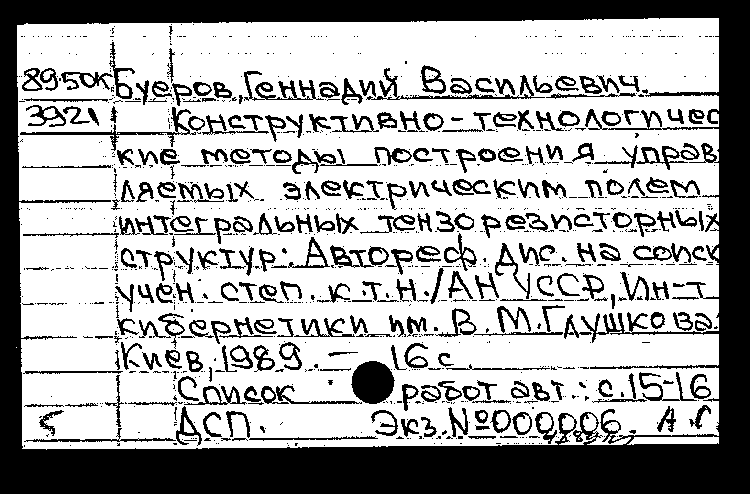 8950к Буеров, Геннадий Васильевич.
3921 Конструктивно-технологичес
кие методы построения управ
ляемых электрическим полем
интегральных тензорезисторных
структур: Автореф. дис. на соиск
учен. степ. к.т.н./АН УССР, Ин-т
кибернетики им. В.М.Глушкова.
Киев, 1989. — 16 с.
Список работ авт.: с.15-16
5 ДСП. Экз.№000006. А.Г